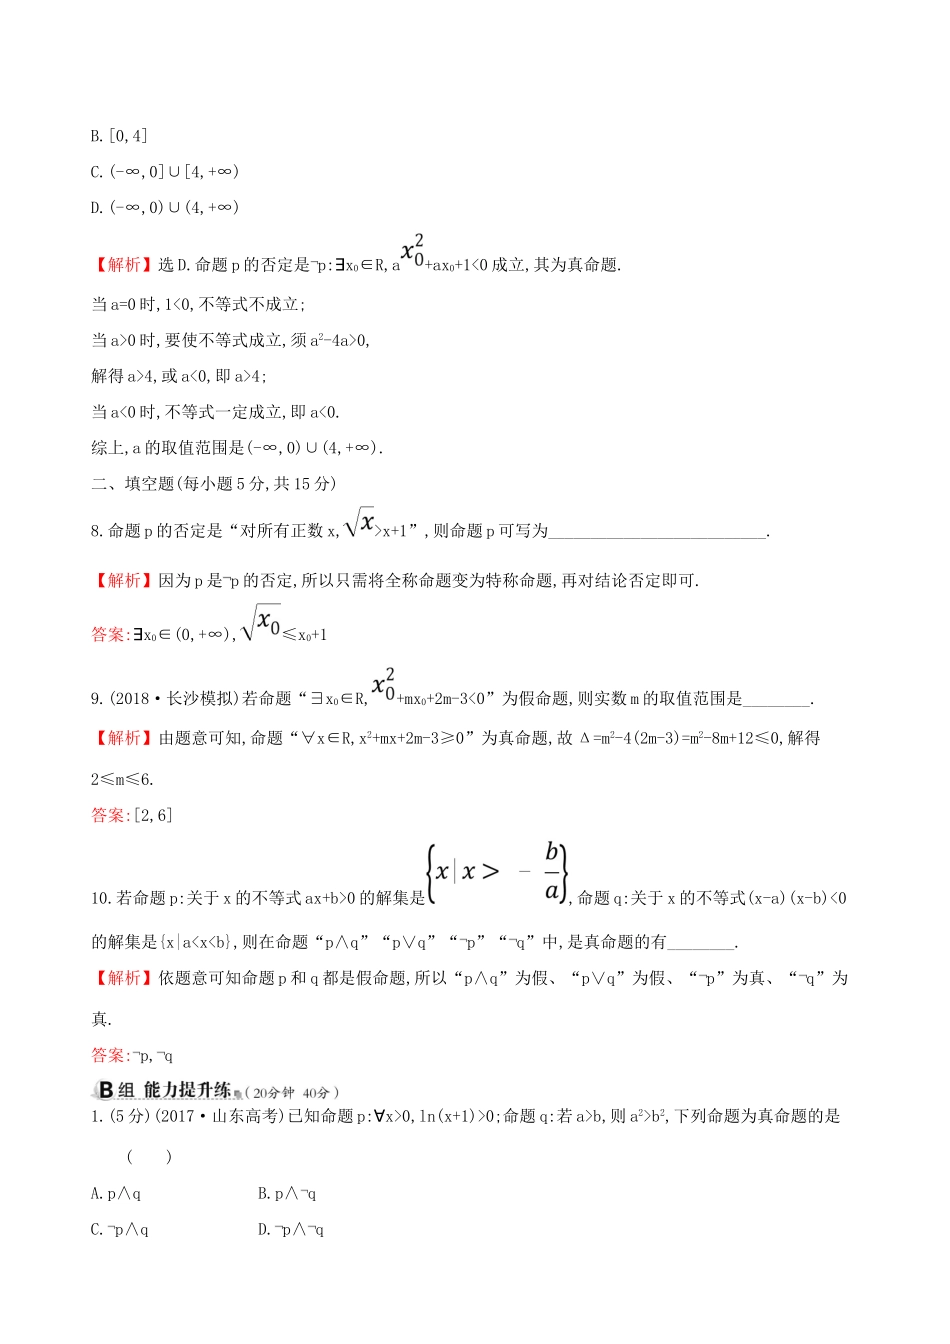 B.[0,4]
C.(-∞,0]∪[4,+∞)
D.(-∞,0)∪(4,+∞)
【解析】选D.命题p的否定是¬p:∃x₀∈R,ax₀²+ax₀+1<0成立,其为真命题.
当a=0时,1<0,不等式不成立;
当a>0时,要使不等式成立,须a²-4a>0,
解得a>4,或a<0,即a>4;
当a<0时,不等式一定成立,即a<0.
综上,a的取值范围是(-∞,0)∪(4,+∞).
二、填空题(每小题5分,共15分)
8.命题p的否定是“对所有正数x,√x>x+1”,则命题p可写为__________________________.
【解析】因为p是¬p的否定,所以只需将全称命题变为特称命题,再对结论否定即可.
答案:∃x₀∈(0,+∞),√x₀≤x₀+1
9.(2018·长沙模拟)若命题“∃x₀∈R,x₀²+mx₀+2m-3<0”为假命题,则实数m的取值范围是________.
【解析】由题意可知,命题“∀x∈R,x²+mx+2m-3≥0”为真命题,故Δ=m²-4(2m-3)=m²-8m+12≤0,解得
2≤m≤6.
答案:[2,6]
10.若命题p:关于x的不等式ax+b>0的解集是{x|x> -b/a},命题q:关于x的不等式(x-a)(x-b)<0
的解集是{x|a<x<b},则在命题“p∧q”“p∨q”“¬p”“¬q”中,是真命题的有________.
【解析】依题意可知命题p和q都是假命题,所以“p∧q”为假、“p∨q”为假、“¬p”为真、“¬q”为
真.
答案:¬p,¬q
B组 能力提升练(20分钟 40分)
1.(5分)(2017·山东高考)已知命题p:∀x>0,ln(x+1)>0;命题q:若a>b,则a²>b²,下列命题为真命题的是
( )
A.p∧q B.p∧¬q
C.¬p∧q D.¬p∧¬q